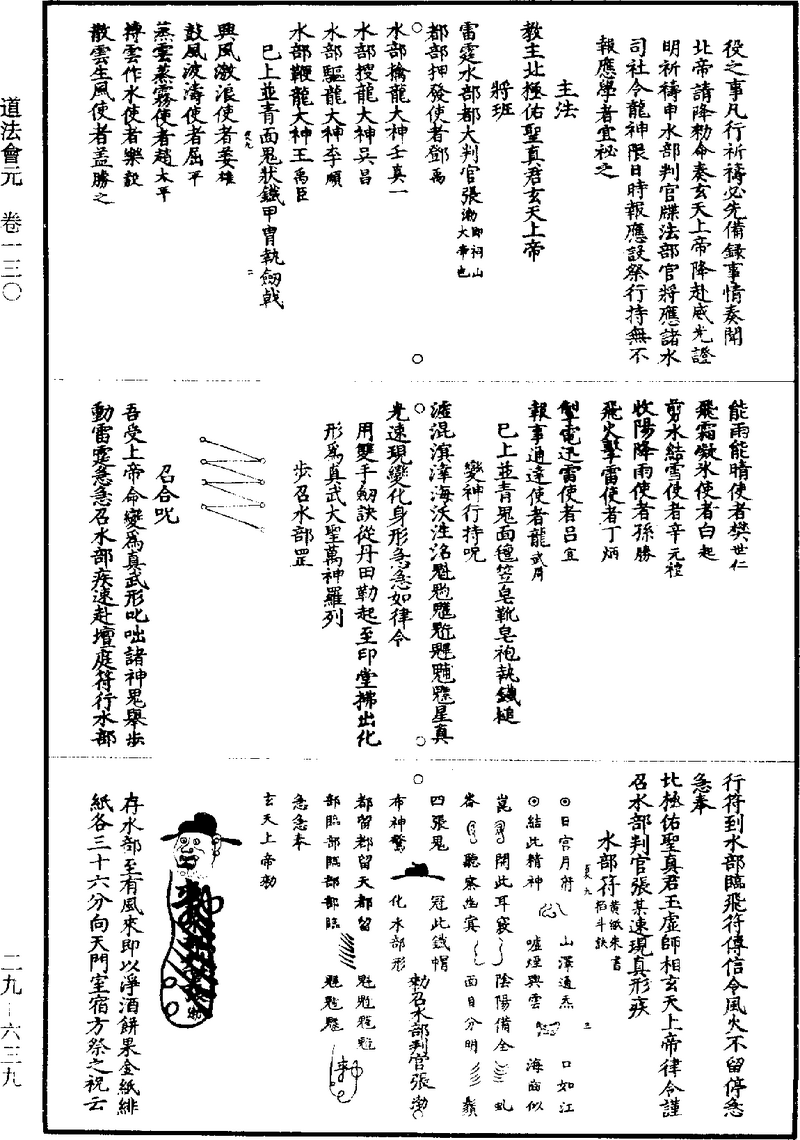 道法會元　卷一三〇
二九—六三九
役之事凡行祈禱必先備錄事情奏聞
北帝請降勑命奏玄天上帝降赴威光證
明祈禱申水部判官牒法部官將應諸水
司社令龍神限日時報應設祭行持無不
報應學者宜秘之
主法
教主北極佑聖真君玄天上帝
將班
雷霆水部都大判官張渤即祠山大帝也
都部押發使者鄧禹
水部擒龍大神壬真一
水部搜龍大神吳昌
水部驅龍大神李順
水部鞭龍大神王禹臣
已上並青面鬼狀鐵甲冑執劒戟
興風激浪使者姜雄
鼓風波濤使者屈平
蒸雲蒸霧使者趙太平
摶雲作水使者樂毅
散雲生風使者孟勝之
能雨能晴使者樊世仁
飛霜凝氷使者白起
剪水結雪使者辛元禮
收陽降雨使者孫勝
飛火擊雷使者丁炳
掣電迅雷使者呂宜
報事通達使者龍武周
已上並青鬼面氊笠皂靴皂袍執鐵槌
變神行持呪
光速現變化身形急急如律令
用雙手劒訣從丹田勒起至印堂拂出化
形爲真武大聖萬神羅列
步召水部罡
召合呪
吾受上帝命變爲真武形叱咄諸神鬼舉步
動雷霆急急召水部疾速赴壇庭符行水部
行符到水部臨飛符傳信令風火不留停急
急奉
北極佑聖真君玉虛師相玄天上帝律令謹
召水部判官張某速現真形疾
水部符黃紙朱書
日宮月府　山澤通炁　口如江
結此精神　噓煙興雲　海齒似
崑　開此耳竅　陰陽備全　虬
峇　聽察幽冥　面目分明　鬚
四張鬼　冠此鐵帽
布神驚　化水部形　勑召水部判官張渤
都留都留天都留
部臨部臨都部臨
急急奉
玄天上帝勑
存水部至有風來即以淨酒餅果金紙緋
紙各三十六分向天門室宿方祭之祝云